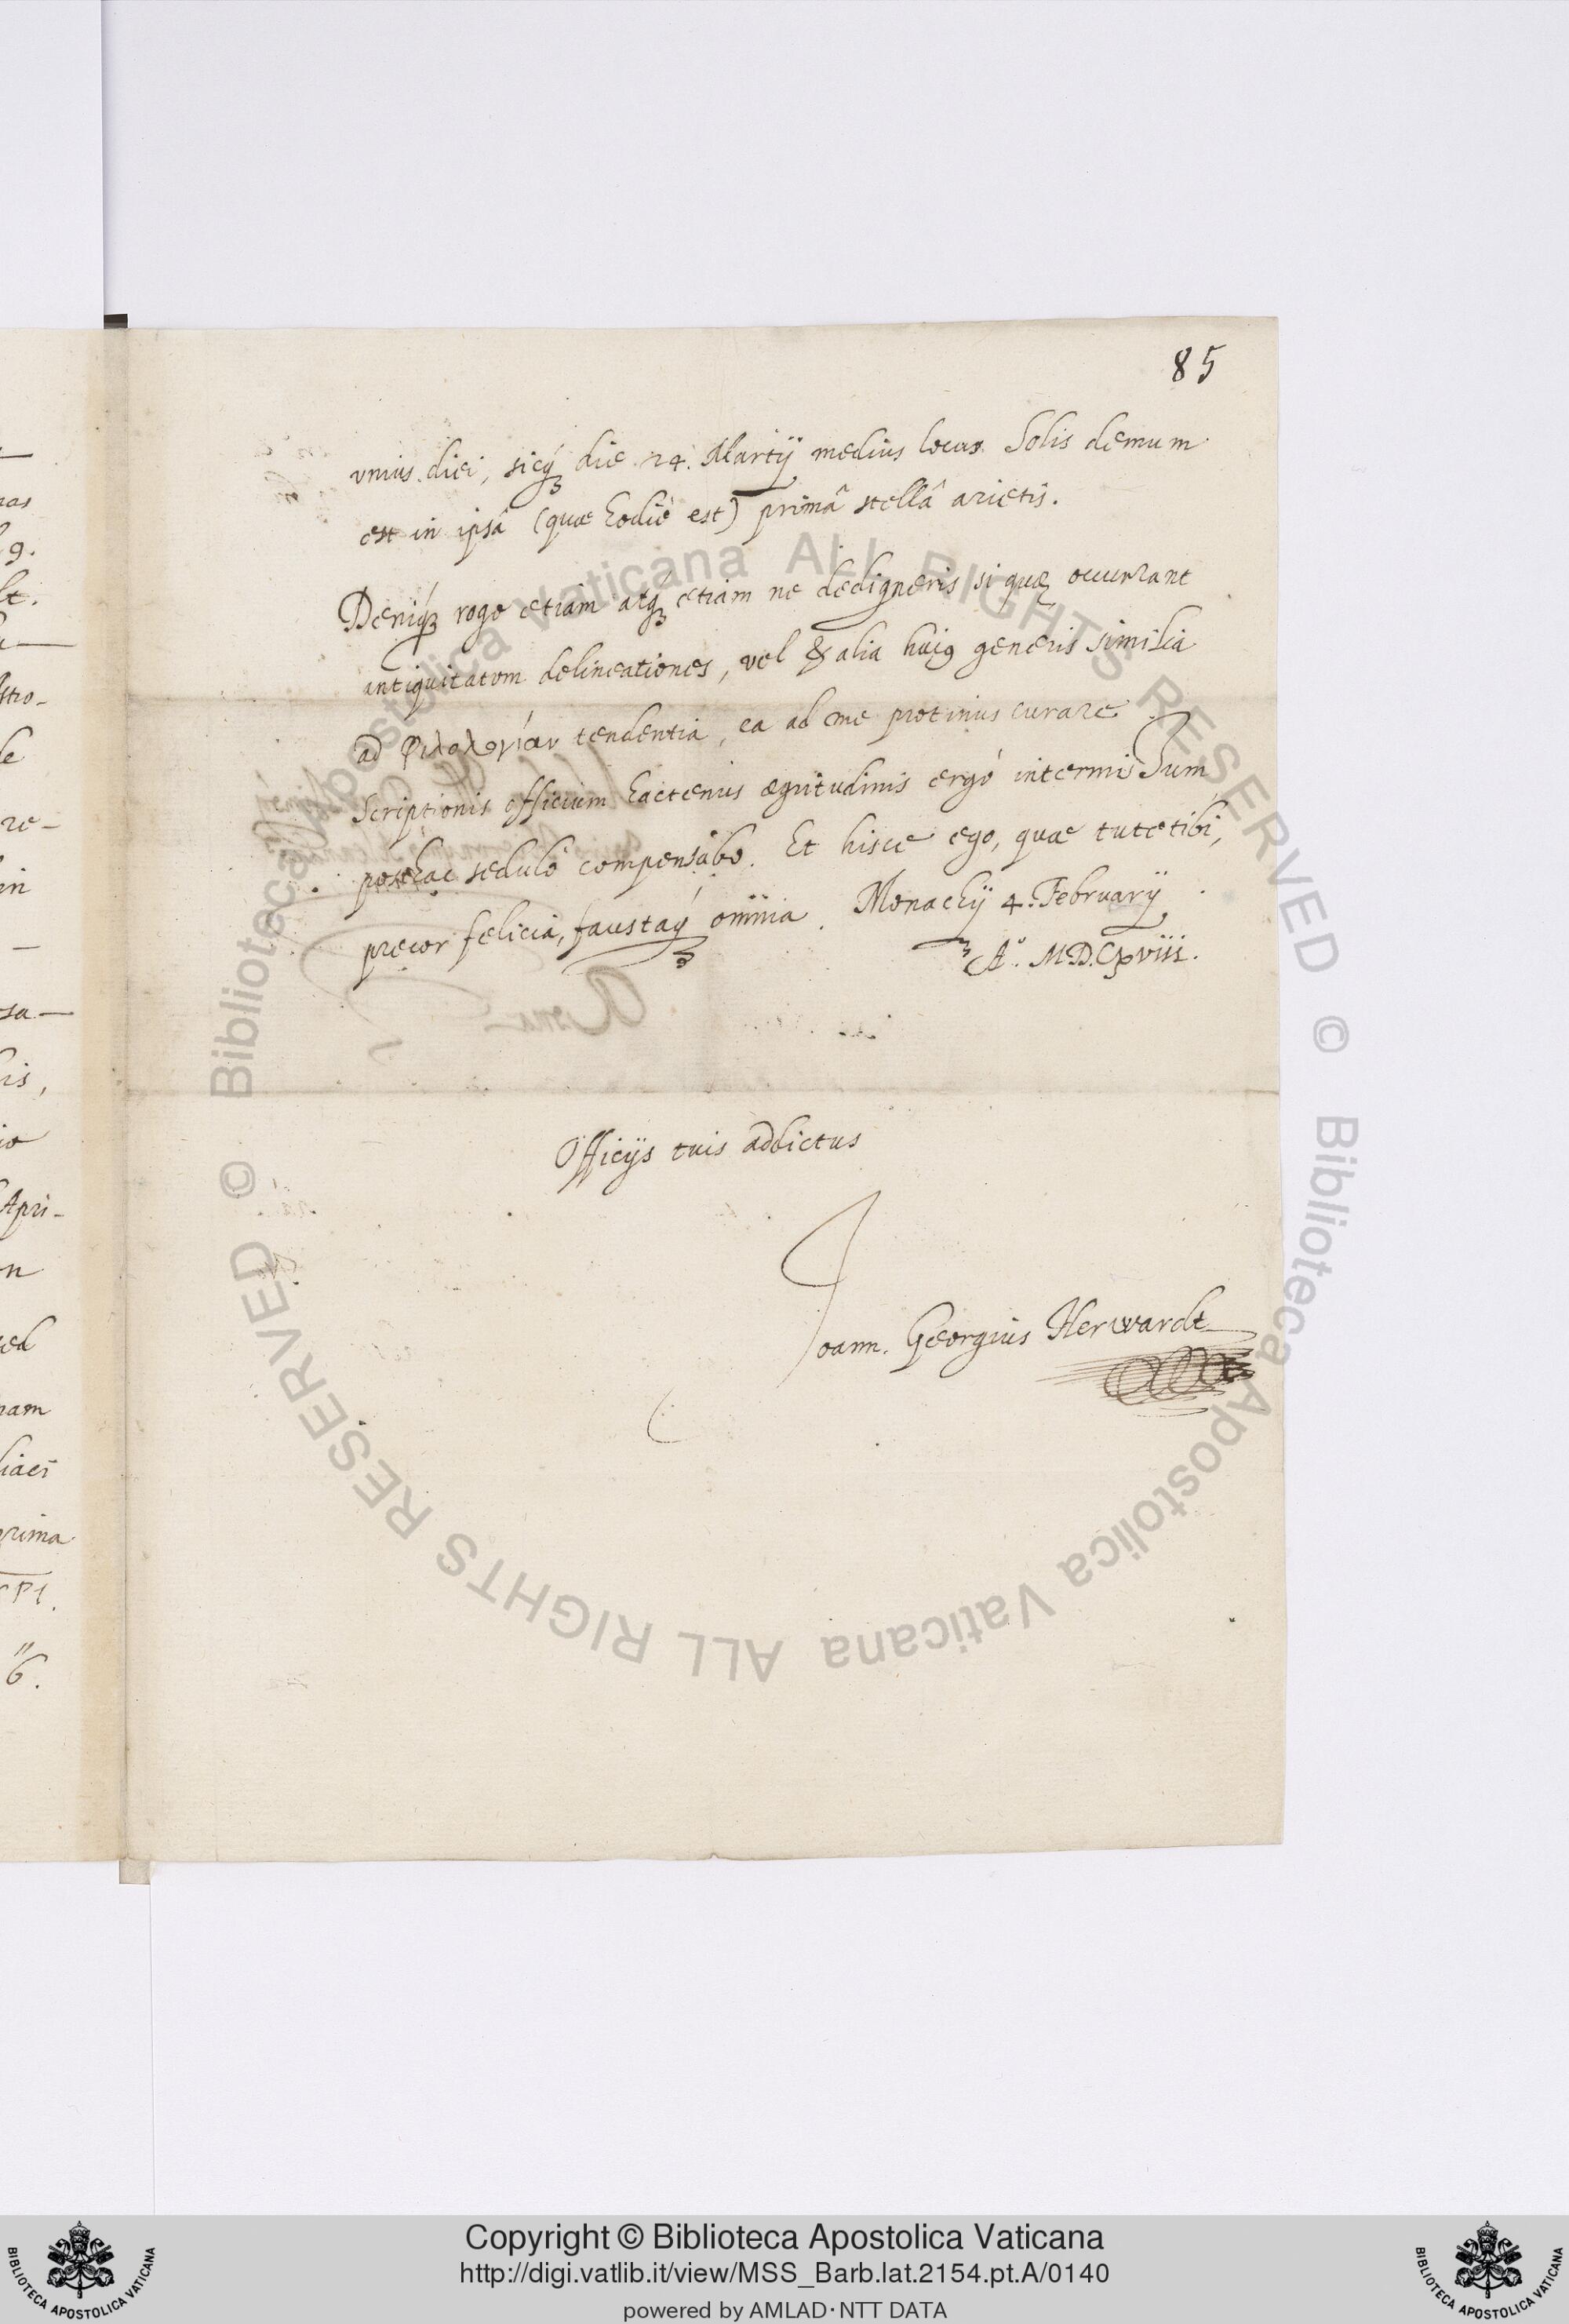 85
vnius diei, sicq́ꝫ die 24. Martij medius locus Solis demum
est in ipsâ (quae hodiè est) primâ stellâ arietis.
Deniq́ꝫ rogo etiam atq́ꝫ etiam ne dedigneris si quę occurrant
antiquitatum delineationes, vel & alia huiꝰ generis similia
ad φιλολογίαν tendentia, ea ad me protinus curare.
Scriptionis officium hactenus aegritudinis ergò intermissum,
posthac sedulò compensabo. Et hisce ego, quae tutetibi,
precor felicia, faustaq́ꝫ omnia. Monachij 4. February
A°. MDCXVIII.
Officijs tuis addictus
Joann. Georgius Herwardt
nas
9.
re-
in
sa-
is,
Apri-
ed
nam
liaci
prima
6.
Roma
© Biblioteca Apostolica Vaticana ALL RIGHTS RESERVED © Biblioteca Apostolica Vaticana ALL RIGHTS RESERVED
BIBLIOTECA APOSTOLICA VATICANA
Copyright © Biblioteca Apostolica Vaticana
http://digi.vatlib.it/view/MSS_Barb.lat.2154.pt.A/0140
powered by AMLAD·NTT DATA
BIBLIOTECA APOSTOLICA VATICANA